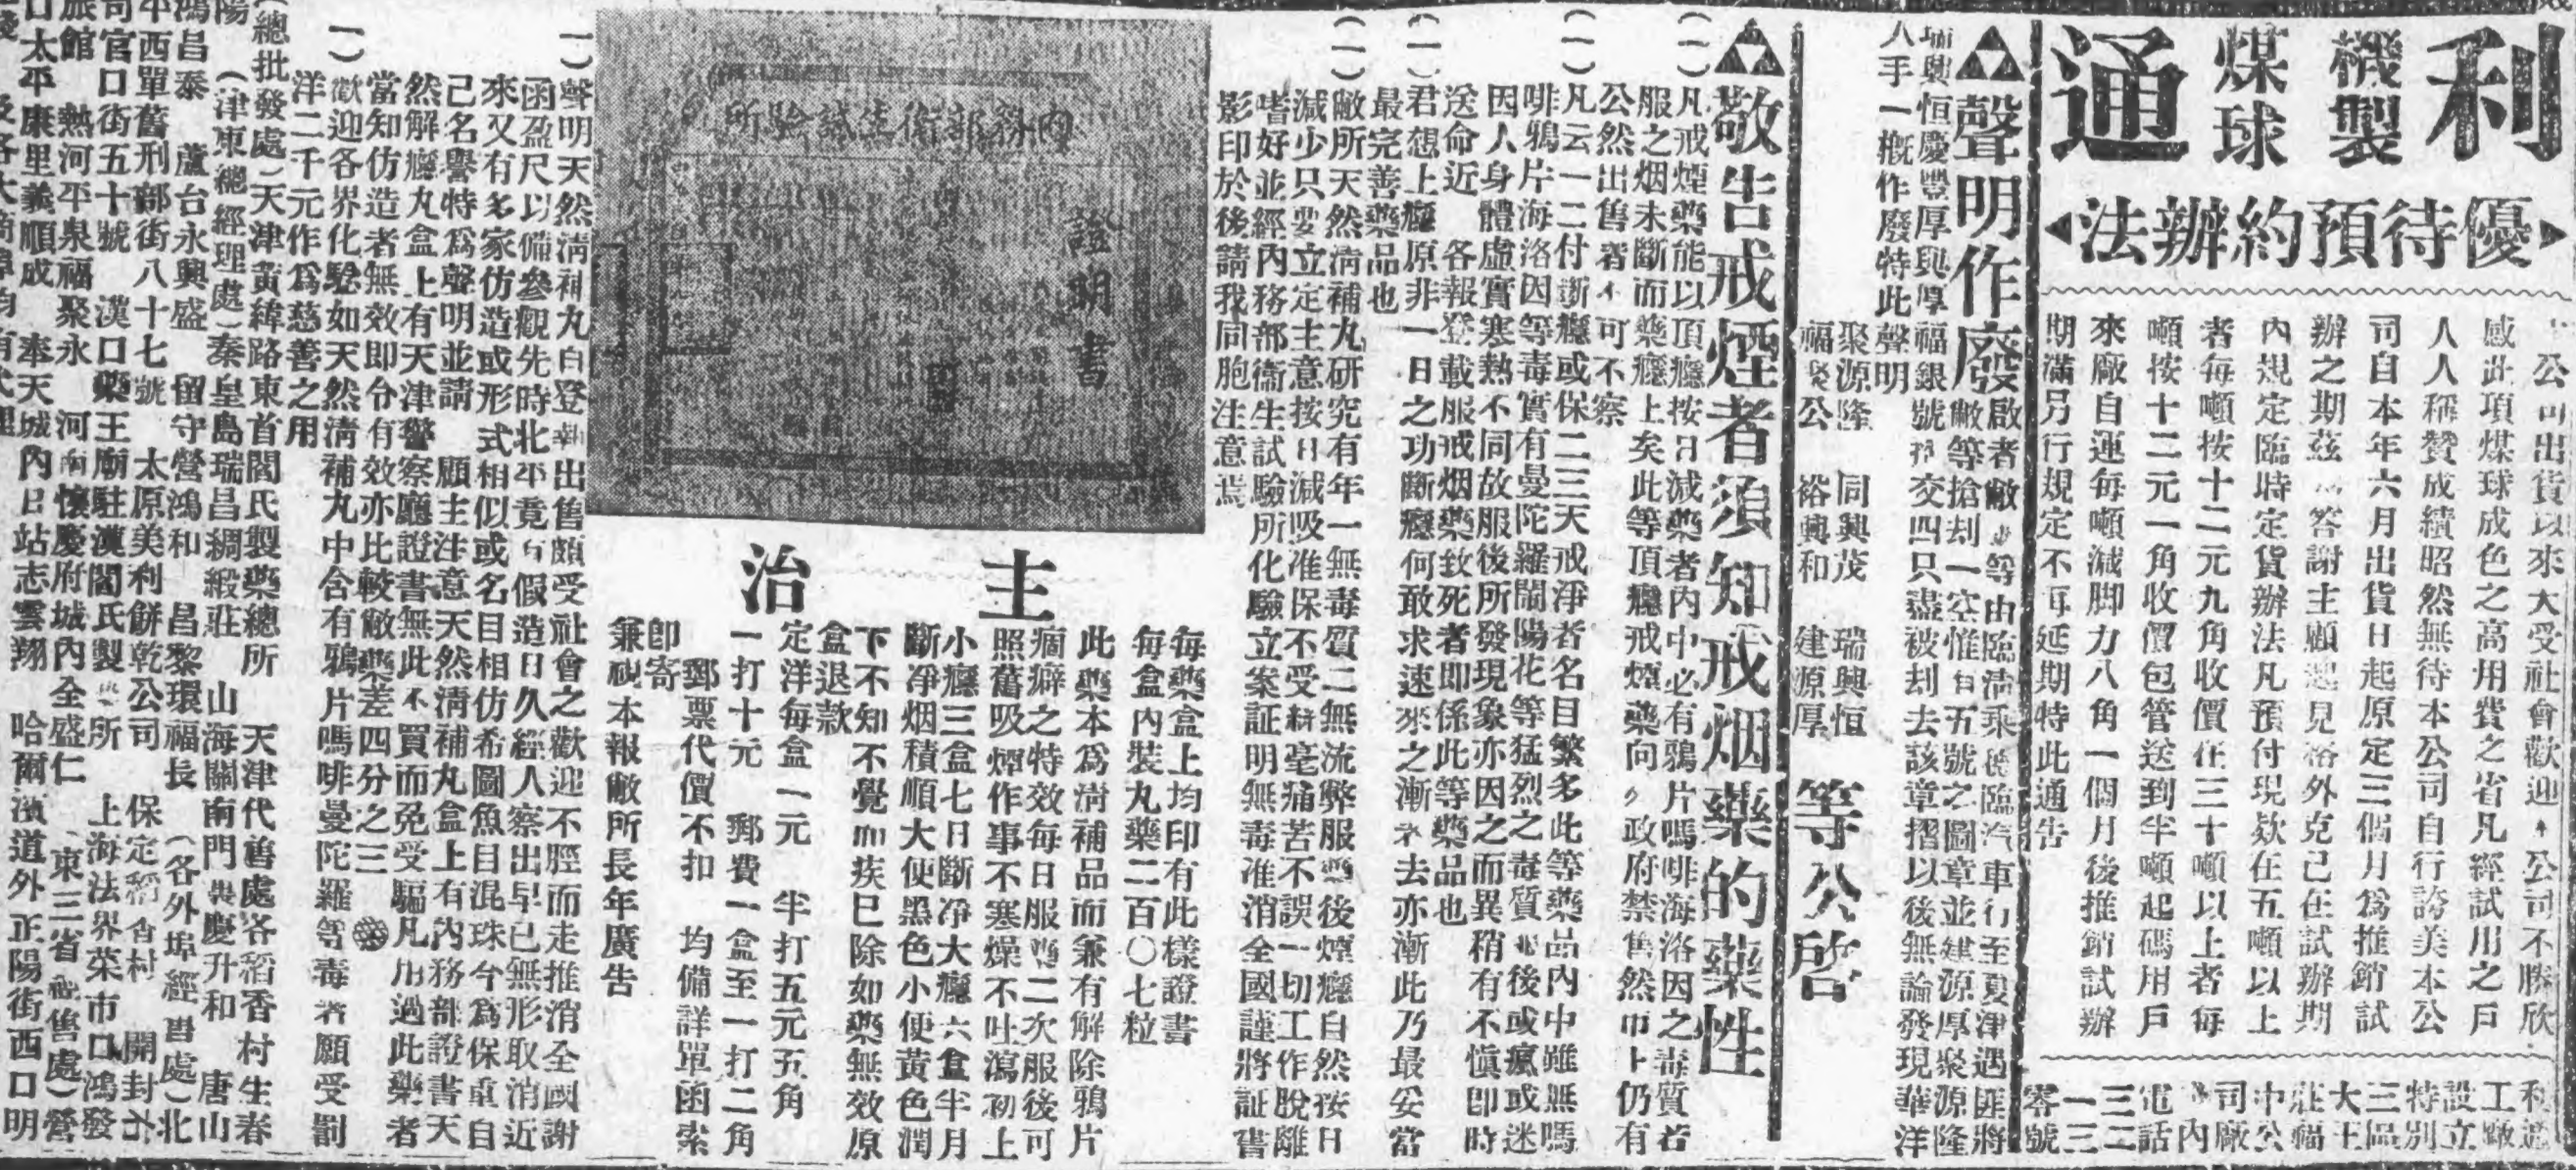 利通
機製
煤球
優待預約辦法
公司出貨以來大受社會歡迎公司不勝欣
感此項煤球成色之高用費之省凡經試用之戶
人人稱贊成績昭然無待本公司自行誇美本公
司自本年六月出貨日起原定三個月為推銷試
辦之期茲答謝主顧起見格外克己在試辦期
內規定臨時定貨辦法凡預付現欵在五噸以上
者每噸按十二元九角收價在三十噸以上者每
噸按十二元一角收價包管送到半噸起碼用戶
來廠自運每噸減脚力八角一個月後推銷試辦
期滿另行規定不再延期特此通告
利通
工廠
設立
特別
三區
大王
莊福
中公
司內
電話
三二
一三
零號
聲明作廢
啟者敝等由臨清乘臨汽車行至夏津遇匪將
敝等搶刦一空惟有五號之圖章並建源厚聚源隆
福銀號交四只盡被刦去該章摺以後無論發現華洋
恒慶豐厚興厚
人手一概作廢特此聲明
聚源隆 同興茂 瑞興恒
福聚公 裕興和 建源厚
等公啓
敬告戒煙者須知戒烟藥的藥性
(一)凡戒煙藥能以頂癮按日減藥者內中必有鴉片嗎啡海洛因之毒質若
服之烟未斷而藥癮上矣此等頂癮戒煙藥向政府禁售然市上仍有
公然出售者不可不察
(一)凡云一二付斷癮或保二三天戒淨者名目繁多此等藥品內中雖無嗎
啡鴉片海洛因等毒實有曼陀羅鬧陽花等猛烈之毒質後或瘋或迷
因人身體虛實寒熱不同故服後所發現象亦因之而異稍有不慎即時
送命近 各報登載服戒烟藥致死者即係此等藥品也
(一)君想上癮原非一日之功斷癮何敢求速來之漸去亦漸此乃最妥當
最完善藥品也
(一)敝所天然清補九研究有年一無毒質二無流弊服藥後煙癮自然按日
減少只要立定主意按日減吸准保不受絲毫痛苦不誤一切工作脫離
嗜好並經內務部衞生試驗所化驗立案証明無毒准消全國謹將証書
影印於後請我同胞注意焉
內務部衛生試驗所
證明書
主治
每藥盒上均印有此樣證書
每盒內裝丸藥二百〇七粒
此藥本為清補品而兼有解除鴉片
痼癖之特效每日服藥二次服後可
照舊吸煙作事不寒燥不吐瀉初上
小癮三盒七日斷淨大癮六盒半月
斷淨烟積順大便黑色小便黃色潤
下不知不覺而疾已除如藥無效原
盒退款
定洋每盒一元 半打五元五角
一打十元 郵費一盒至一打二角
郵票代價不扣 均備詳單函索
即寄
兼視本報敝所長年廣告
(一)聲明天然清補丸自登報出售頗受社會之歡迎不脛而走推消全國謝
函盈尺以備參觀先時北平竟有假造日久經人察出早已無形取消近
來又有多家仿造或形式相似或名目相仿希圖魚目混珠今為保重自
己名譽特為聲明並請 顧主注意天然清補丸盒上有內務部證書天
然解癮丸盒上有天津警察廳證書無此不買而免受騙凡用過此藥者
當知仿造者無效即令有效亦比較敝藥差四分之三
(一)歡迎各界化驗如天然清補丸中含有鴉片嗎啡曼陀羅等毒者願受罰
洋二千元作為慈善之用
(總批發處)天津黃緯路東首閻氏製藥總所 天津代售處各稻香村生春
陽 (津東總經理處)秦皇島瑞昌綢緞莊 山海關南門裏慶升和 唐山
鴻昌泰 蘆台永興盛 留守營鴻和 昌黎環福長 (各外埠經售處)北
平西單舊刑部街八十七號 太原美利餅乾公司 保定稻香村 開封
司官口街五十號 漢口藥王廟駐漢閻氏製藥所 上海法界菜市口鴻發
旅館 熱河平泉福聚永 河南懷慶府城內全盛仁 (東三省經售處)營
口太平康里義順成 奉天城內日站志雲翔 哈爾濱道外正陽街西口明
各大商埠均有代理